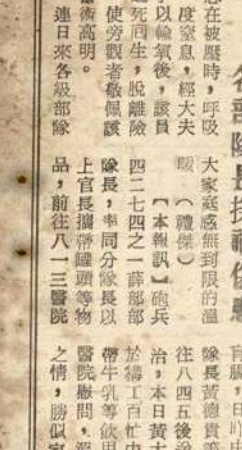 在被壓時，呼吸
度窒息，經大夫
予以輸氧後，該員
死回生，脫離險
使旁觀者敬佩該
術高明。
連日來各級部隊
大家庭感無到限的溫
暖（禮傑）
【本報訊】砲兵
四二七四之一薛部部
隊長，率同分隊長以
上官長攜帶罐頭等物
品，前往八一三醫院
隊長黃德貴
往八四五後
治，本日黃大
於構工百忙中
帶牛乳等飲
醫院慰問，
之情，勝似家